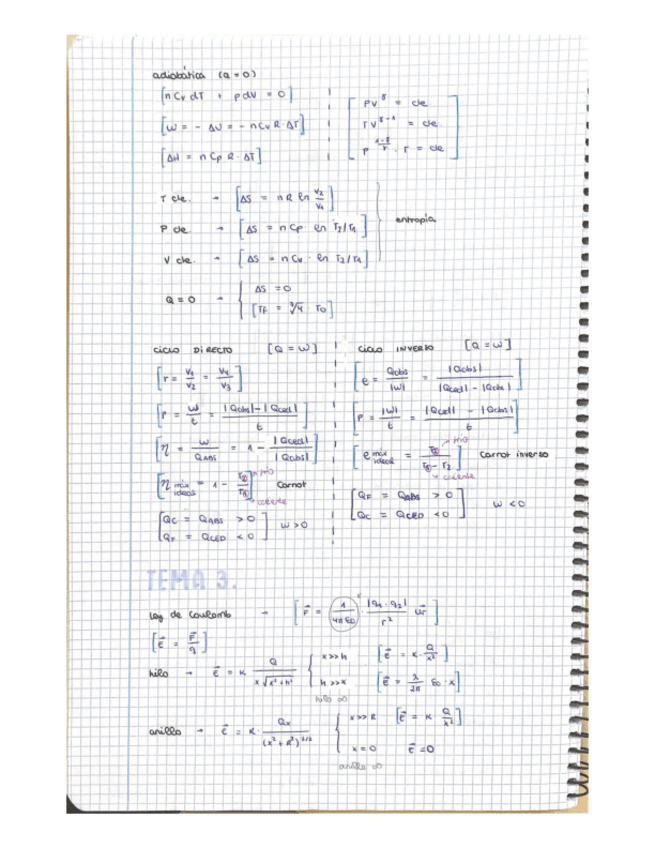 adiabática (Q = 0)
[n Cv dT + p dV = 0]
[W = - ΔU = - n Cv R · ΔT]
[ΔH = n Cp R · ΔT]
PV^γ = cte
TV^(γ-1) = cte.
P^((1-γ)/γ) · T = cte
T cte. → [ΔS = n R ln V2/V1]
P cte → [ΔS = n Cp ln T2/T1]
V cte. → [ΔS = n Cv · ln T2/T1]
entropía
Q = 0 → ΔS = 0
ciclo DIRECTO [Q = W]
[r = V1/V2 = V4/V3]
[P = W/t = (|Qabs| - |Qced|)/t]
[η = W/QABS = 1 - |Qced|/|Qabs|]
[η máx ideal = 1 - ] Carnot
frío
caliente
[QC = QABS > 0
QF = QCED < 0] W > 0
ciclo INVERSO [Q = W]
[e = Qabs/|W| = |Qabs|/(|Qced| - |Qabs|)]
[P = |W|/t = (|Qced| - |Qabs|)/t]
[e máx ideal = ] Carnot inverso
frío
caliente
[QF = QABS > 0
QC = QCED < 0] W < 0
TEMA 3.
Ley de Coulomb → [F⃗ = 1/(4π ε0) · |q1 · q2|/r² u⃗r]
[E⃗ = F⃗/q]
hilo → E⃗ = K Q/(x√(x²+h²))
x >> h [E⃗ = K · Q/x²]
h >> x [E⃗ = λ/2π ε0 · x]
hilo ∞
anillo → E⃗ = K · Qx/(x² + R²)^(3/2)
x >> R [E⃗ = K Q/x²]
x = 0 E⃗ = 0
anillo ∞